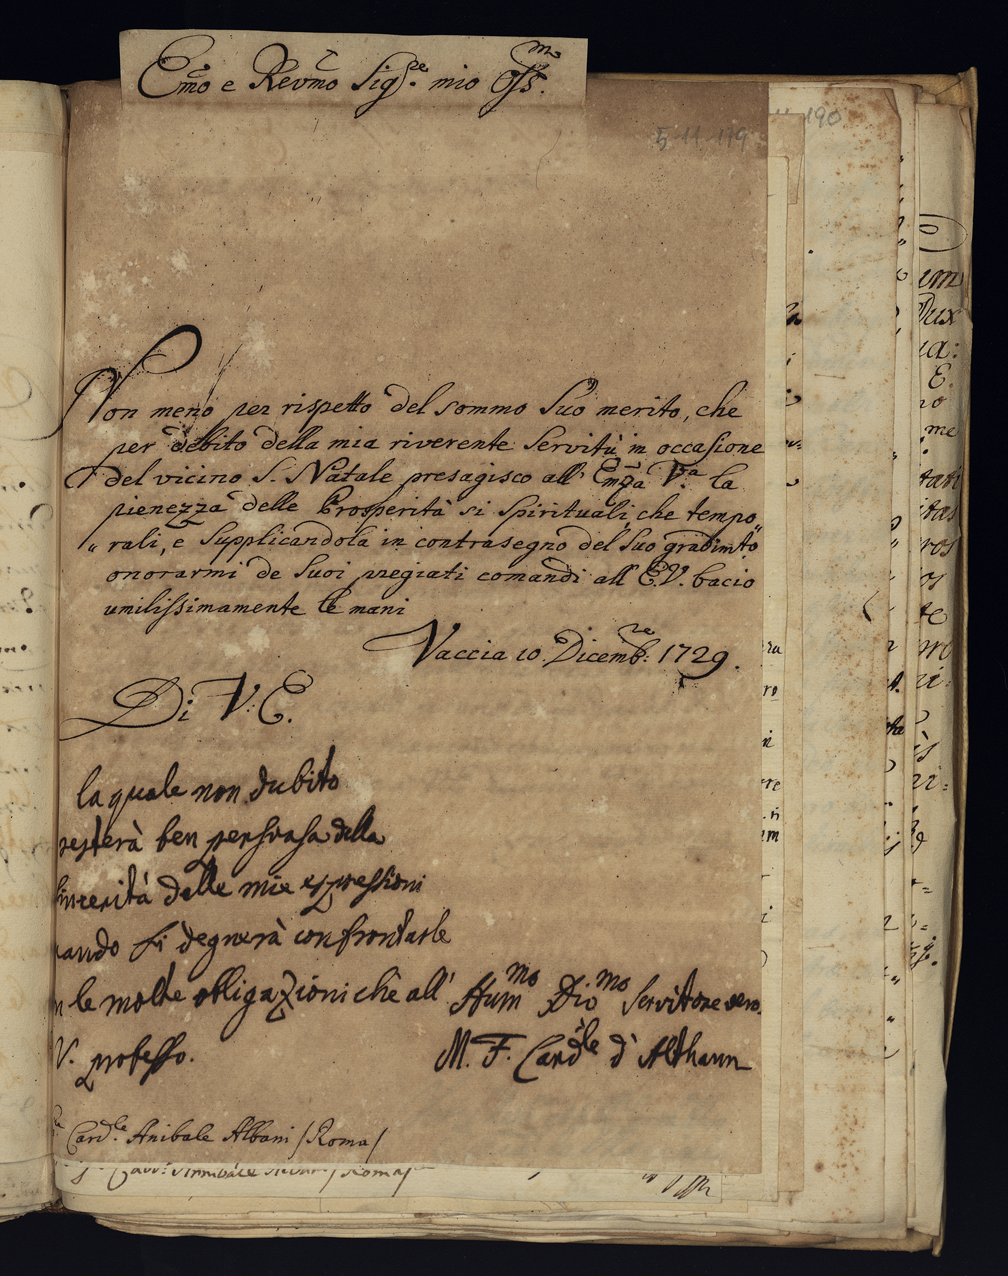 Emo e Revmo Sigre. mio Ossmo.
5-11-119
190
Non meno per rispetto del sommo Suo merito, che
per debito della mia riverente Servitù in occasione
del vicino S. Natale presagisco all' Emza Va. la
pienezza delle Prosperità si Spirituali, che tempo„
„rali, e Supplicandola in contrasegno del Suo gradimto
onorarmi de Suoi pregiati comandi all' E.V. bacio
umilissimamente le mani
Vaccia 10. Dicembre: 1729.
Di V. E.
la quale non dubito
resterà ben persuasa della
sincerità delle mie espressioni
uando si degnerà confrontarle
n le molte obligazioni che all'
V. professo.
Hummo Diomo Servitore vero
M. F. Cardle d' Althann
Cardle. Anibale Albani /Roma/